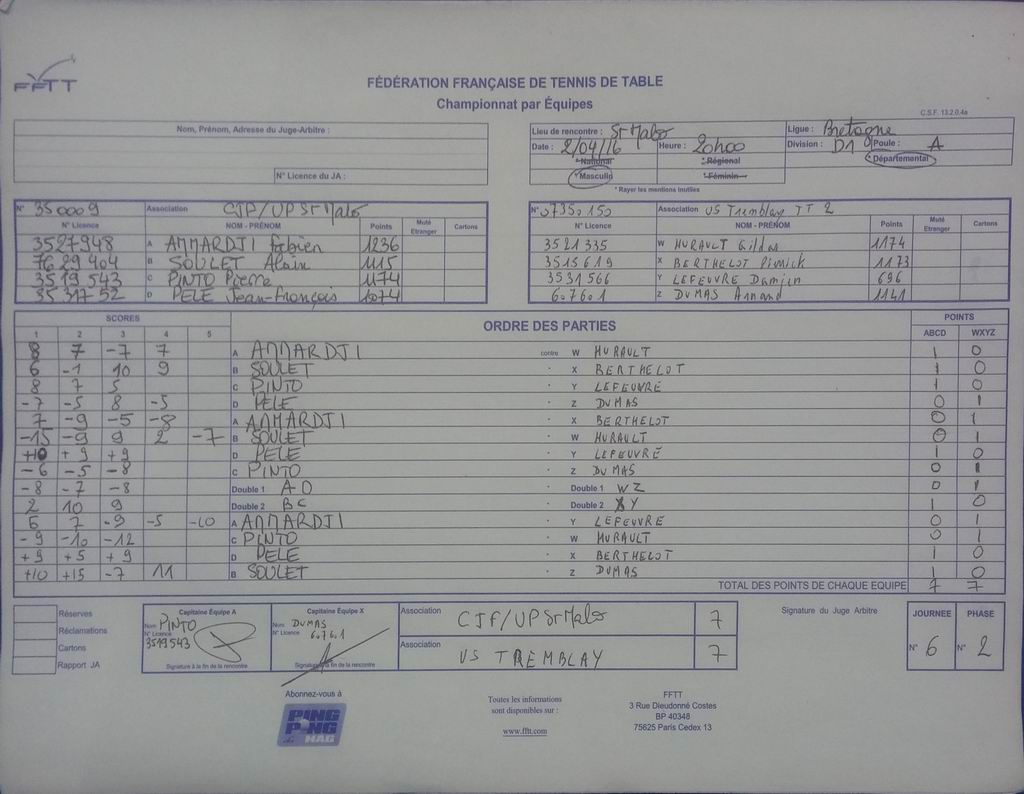 FFTT
FÉDÉRATION FRANÇAISE DE TENNIS DE TABLE
Championnat par Équipes
C.S.F. 13.2.0.4a
Nom, Prénom, Adresse du Juge-Arbitre :
N° Licence du JA :
Lieu de rencontre : St Malo Ligue : Bretagne
Date : 2/04/16 Heure : 20h00 Division : D1 Poule : A
* National * Régional * Départemental
* Masculin * Féminin
* Rayer les mentions inutiles
N° 350009 Association CJF/UP St Malo
N° Licence NOM - PRÉNOM Points Muté Etranger Cartons
3527948 A AMMARDJI Fabien 1236
7629404 B SOULET Alain 1115
3519543 C PINTO Pierre 1174
3531752 D PELE Jean-François 1074
N° 07350150 Association US Tremblay TT 2
N° Licence NOM - PRÉNOM Points Muté Etranger Cartons
3521335 W HURAULT Gildas 1174
3515619 X BERTHELOT 1173
3531566 Y LEFEUVRE Damien 696
607601 Z DUMAS Armand 1141
SCORES ORDRE DES PARTIES POINTS
1 2 3 4 5 ABCD WXYZ
8 7 -7 7 A AMMARDJI contre W HURAULT 1 0
6 -1 10 9 B SOULET - X BERTHELOT 1 0
8 7 5 C PINTO - Y LEFEUVRE 1 0
-7 -5 8 -5 D PELE - Z DUMAS 0 1
7 -9 -5 -8 A AMMARDJI - X BERTHELOT 0 1
-15 -9 9 2 -7 B SOULET - W HURAULT 0 1
+10 +9 +9 D PELE - Y LEFEUVRE 1 0
-6 -5 -8 C PINTO - Z DUMAS 0 1
-8 -7 -8 Double 1 AD - Double 1 WZ 0 1
2 10 9 Double 2 BC - Double 2 XY 1 0
6 7 -9 -5 -10 A AMMARDJI - Y LEFEUVRE 0 1
-9 -10 -12 C PINTO - W HURAULT 0 1
+9 +5 +9 D PELE - X BERTHELOT 1 0
+10 +15 -7 11 B SOULET - Z DUMAS 1 0
TOTAL DES POINTS DE CHAQUE EQUIPE 7 7
Réserves
Réclamations
Cartons
Rapport JA
Capitaine Équipe A
Nom PINTO
N° Licence
3519543
Signature à la fin de la rencontre
Capitaine Équipe X
Nom DUMAS
N° Licence 607601
Signature à la fin de la rencontre
Association CJF/UP St Malo 7
Association US TREMBLAY 7
Signature du Juge Arbitre
JOURNEE PHASE
N° 6 N° 2
Abonnez-vous à
PING PONG MAG
Toutes les informations
sont disponibles sur :
www.fftt.com
FFTT
3 Rue Dieudonné Costes
BP 40348
75625 Paris Cedex 13